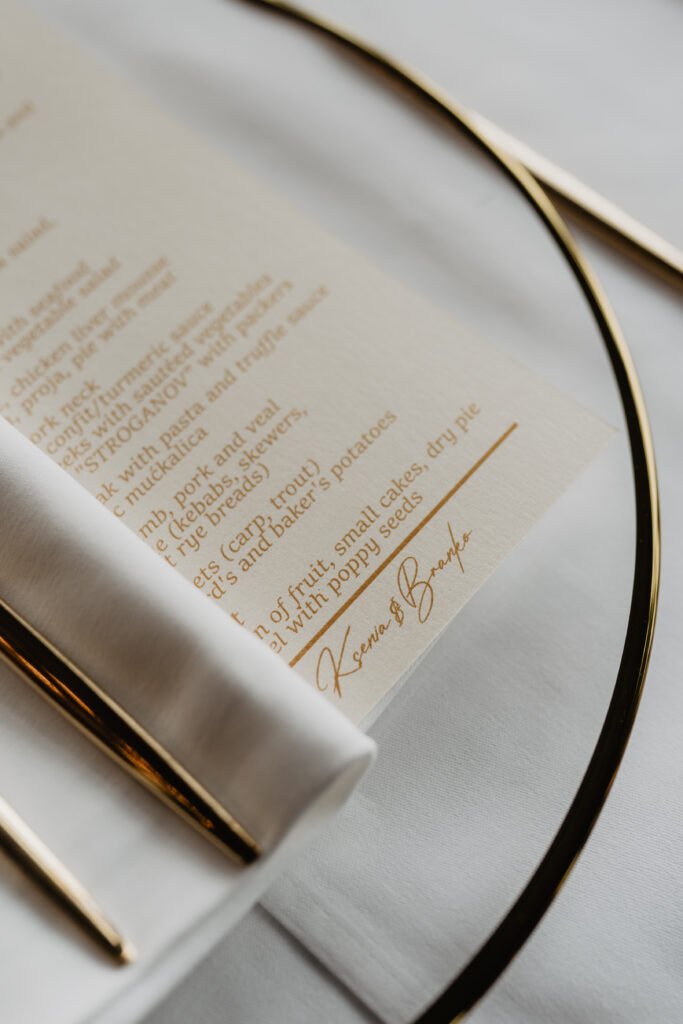 and
salad,
seafood
vegetable salad
chicken liver mousse
, proja, pie with meat
neck
confit/turmeric sauce
with sautéed vegetables
"STROGANOV" with packers
with pasta and truffle sauce
mućkalica
pork and veal
(kebabs, skewers,
rye breads)
(carp, trout)
and baker's potatoes
of fruit, small cakes, dry pie
with poppy seeds
Ksenia & Branko